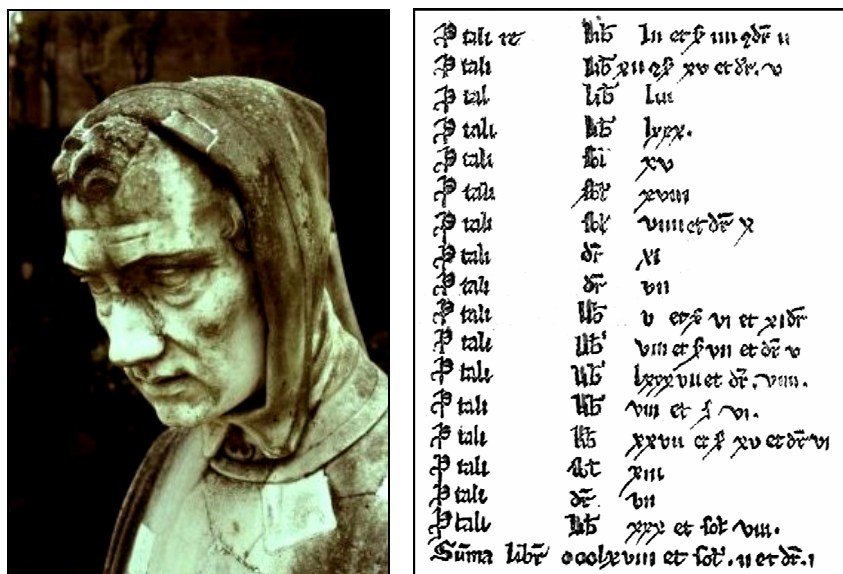 P tali rē lib̄ lii et ẜ iiii ⁊ dr̄ ii
P tali lib̄ xii ⁊ ẜ xv et dr̄. v
P tal lib̄ liii
P tali lib̄ lxxx.
P tali sol xv
P tali sol xviii
P tali sol viiii et dr̄ x
P tali dr̄ xi
P tali dr̄ vii
P tali lib̄ v et ẜ vi et xi dr̄
P tali lib̄ viii et ẜ vii et dr̄ v
P tali lib̄ lxxxvii et dr̄. viiii.
P tali lib̄ viii et ẜ vi.
P tali lib̄ xxvii et ẜ xv et dr̄ vi
P tali sol xiii
P tali dr̄ vii
P tali lib̄ xxx et sol viii.
Sūma libr̄ ccclxviii et sol. ii et dr̄. i